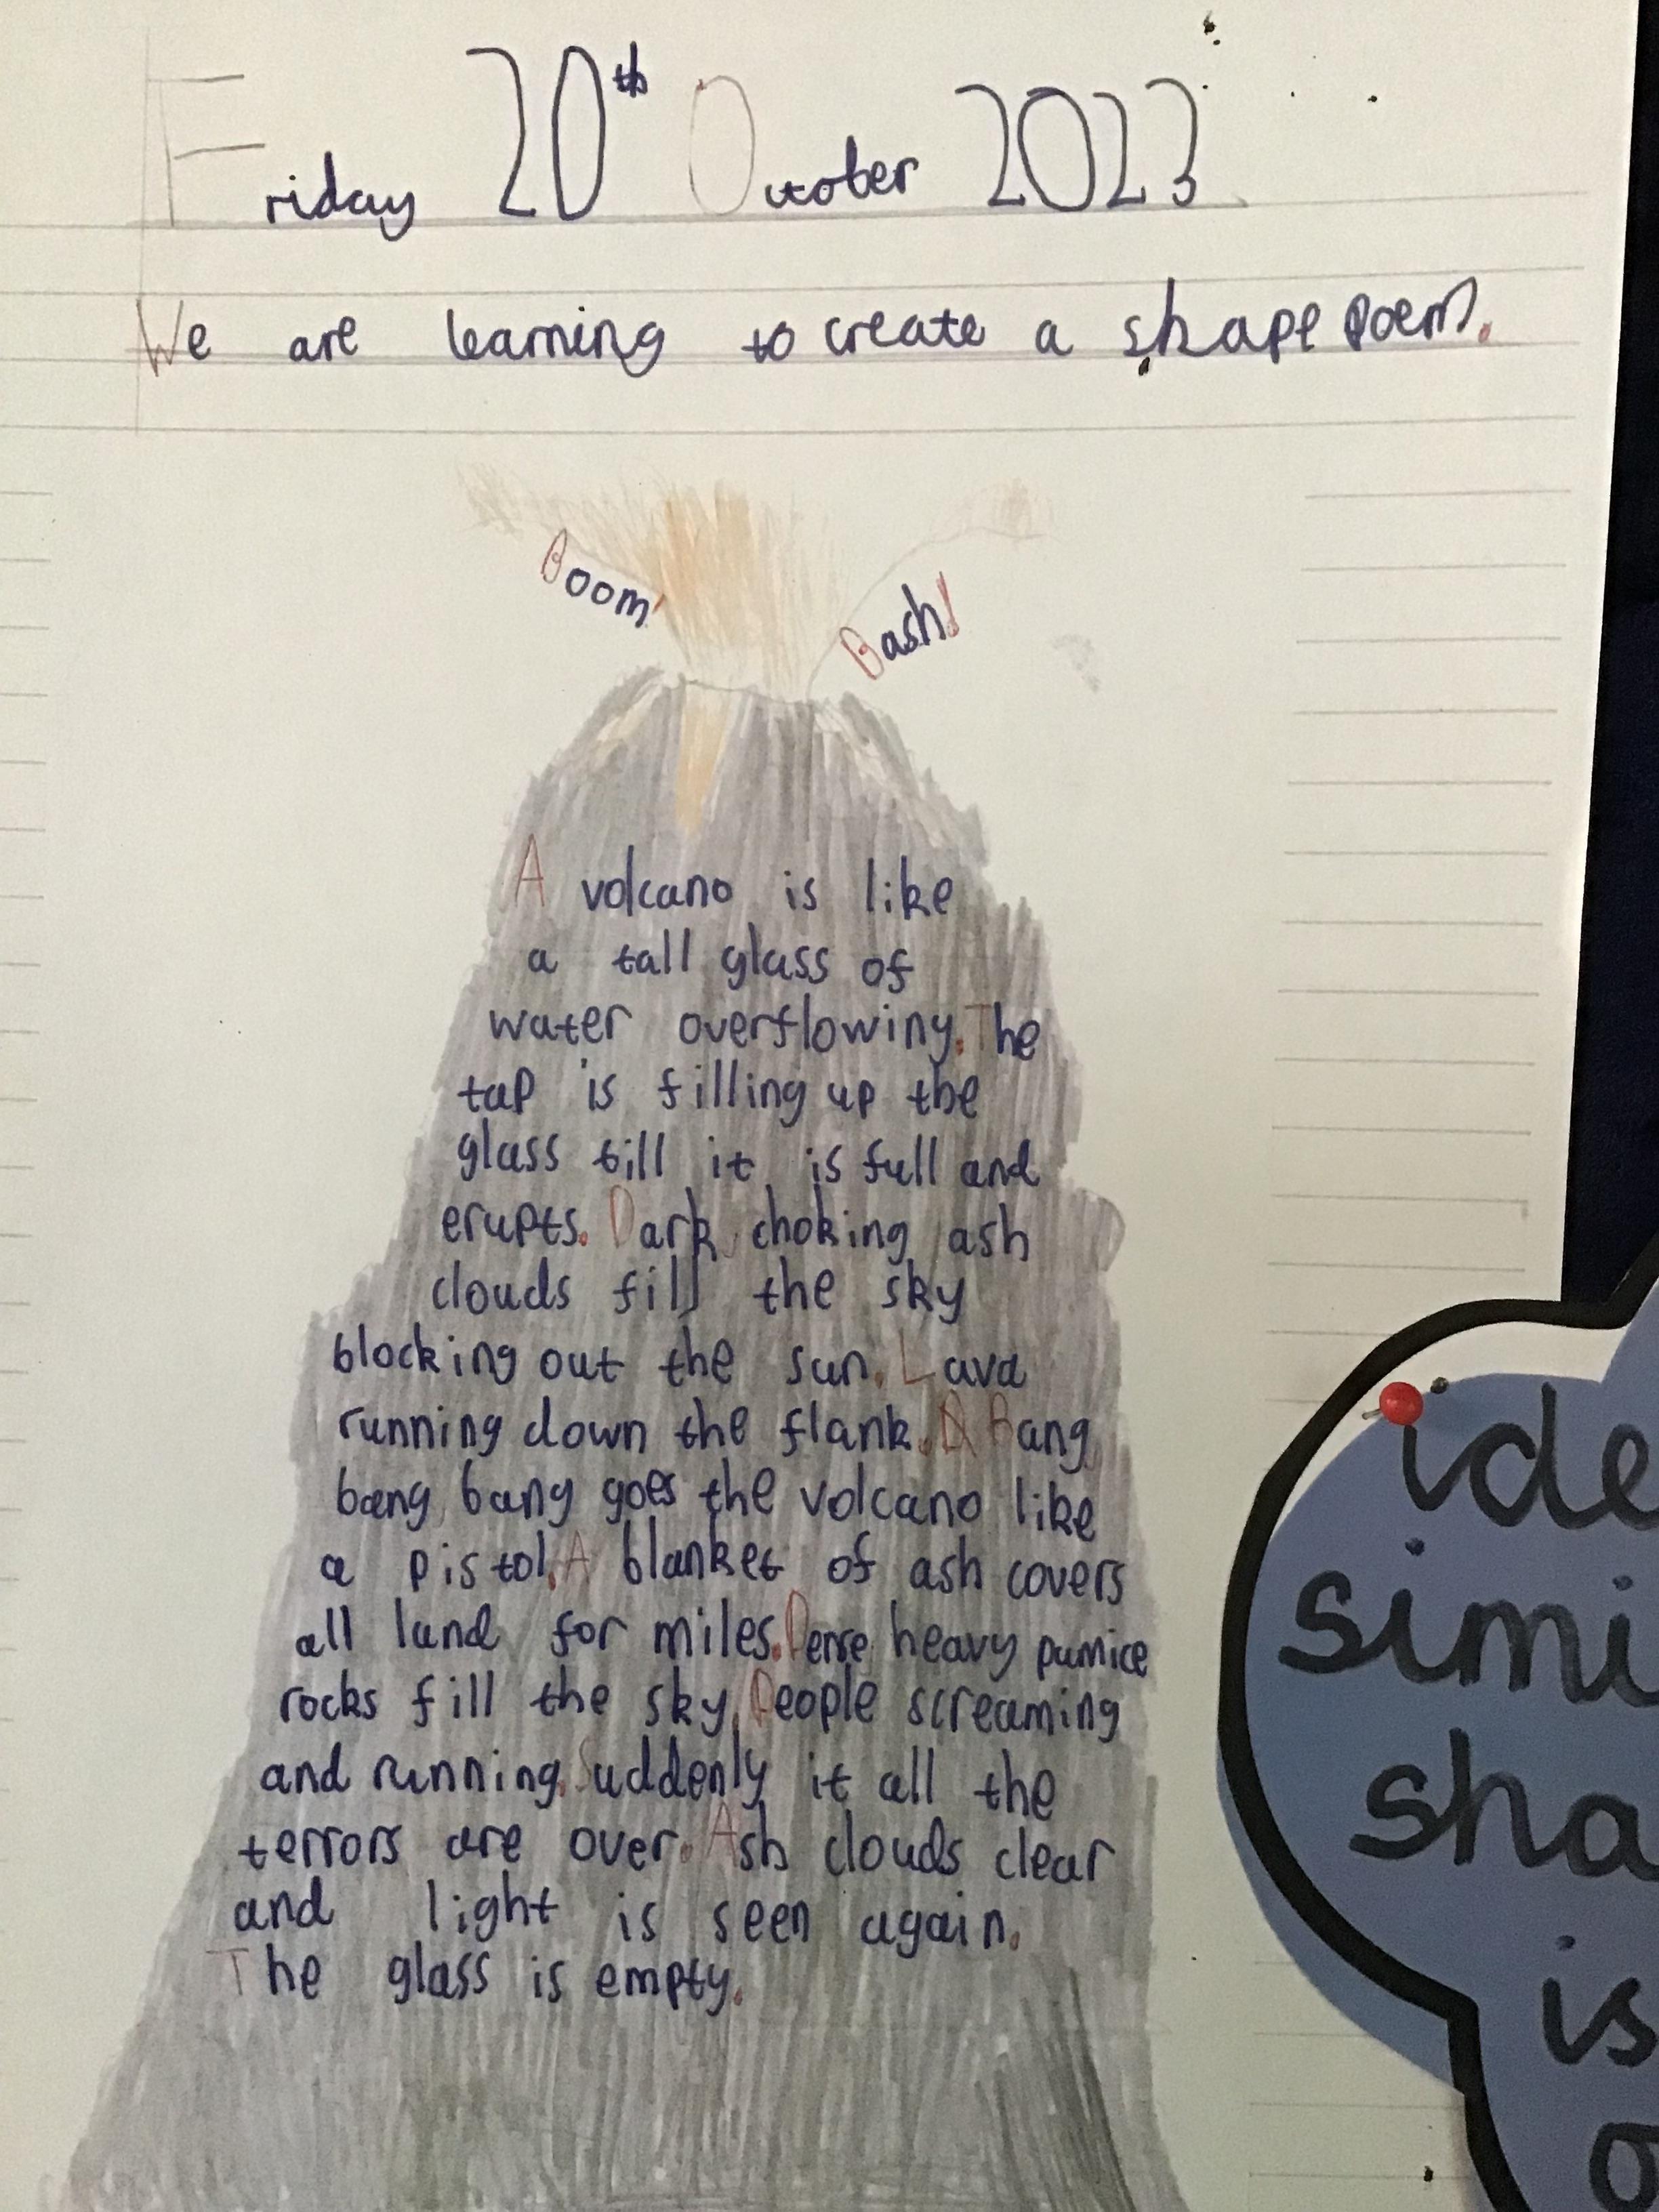 Friday 20th October 2023
We are learning to create a shape poem.
Boom!
Bash!
A volcano is like
a tall glass of
water overflowing. The
tap is filling up the
glass till it is full and
erupts. Dark, choking ash
clouds fill the sky
blocking out the sun. Lava
running down the flank. Bang
bang, bang goes the volcano like
a pistol. A blanket of ash covers
all land for miles. Dense, heavy pumice
rocks fill the sky. People screaming
and running. Suddenly it all the
terrors are over. Ash clouds clear
and light is seen again.
The glass is empty.
ide
simi
sha
is